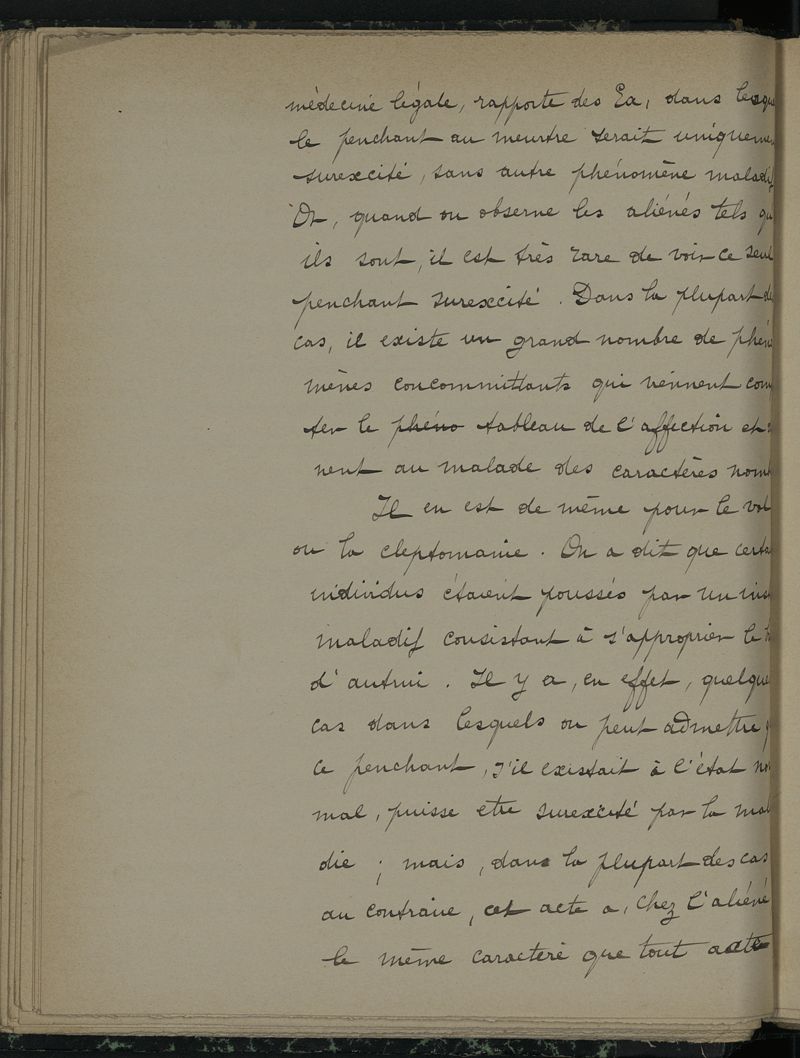 médecine légale, rapporte des Ea, dans lesqu
le penchant au meurtre serait uniqueme
surexcité, sans autre phénomène maladif
Or, quand on observe les aliénés tels qu
ils sont, il est très rare de voir ce seul
penchant surexcité. Dans la plupart de
cas, il existe un grand nombre de phén
mènes concommittants qui viennent com
ter le phéno tableau de l'affection et
nent au malade des caractères nom
Il en est de même pour le vol
ou la cleptomanie. On a dit que certa
individus étaient poussés par un ins
maladif consistant à s'approprier le b
d'autrui. Il y a, en effet, quelque
cas dans lesquels on peut admettre q
ce penchant, s'il existait à l'état no
mal, puisse etre surexcité par la mal
die ; mais, dans la plupart des cas
au contraire, cet acte a, chez l'aliéné
le même caractère que tout acte